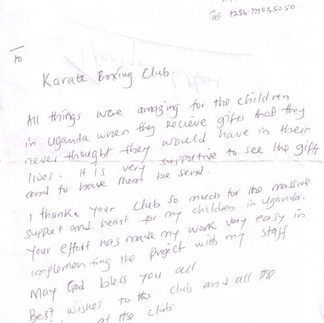 Tel: +256-
To
Karate Boxing Club
All things were amazing for the children
in Uganda when they recieve gifts that they
never thought they would have in their
lives. It is very supportive to see the gift
and to have them be send.
I thanke your club so much for the massive
support and heart for my children in Uganda.
Your effort has made my work very easy in
implementing the project with my staff
May God bless you all.
Best wishes to the club and all the
of the club